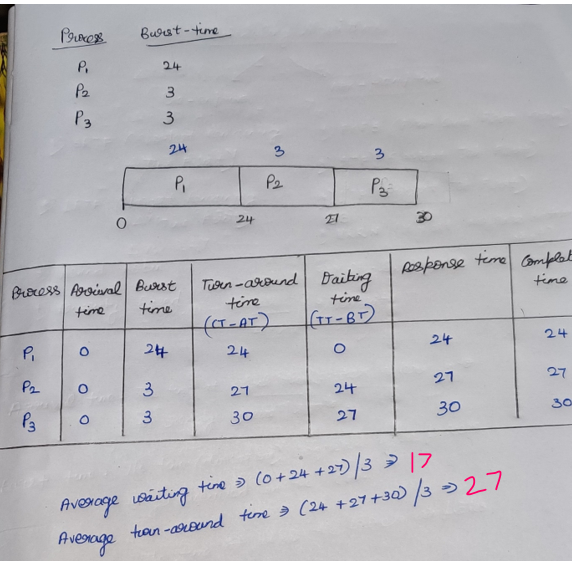 Process Burst-time
P1 24
P2 3
P3 3
24 3 3
P1 P2 P3
0 24 27 30
Process Arrival time Burst time Turn-around time (CT-AT) Waiting time (TT-BT) Response time Complet time
P1 0 24 24 0 24 24
P2 0 3 27 24 27 27
P3 0 3 30 27 30 30
Average waiting time ⇒ (0+24+27)/3 ⇒ 17
Average turn-around time ⇒ (24+27+30)/3 ⇒ 27